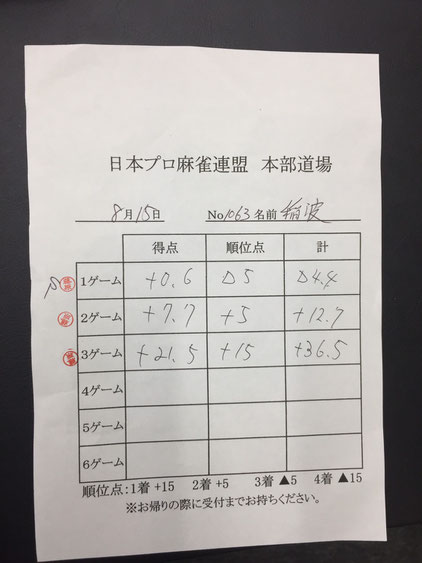 日本プロ麻雀連盟 本部道場
8月15日 No1063 名前 稲波
得点 順位点 計
1ゲーム +0.6 △5 △4.4
2ゲーム +7.7 +5 +12.7
3ゲーム +21.5 +15 +36.5
4ゲーム
5ゲーム
6ゲーム
順位点:1着 +15 2着 +5 3着 ▲5 4着 ▲15
※お帰りの際に受付までお持ちください。